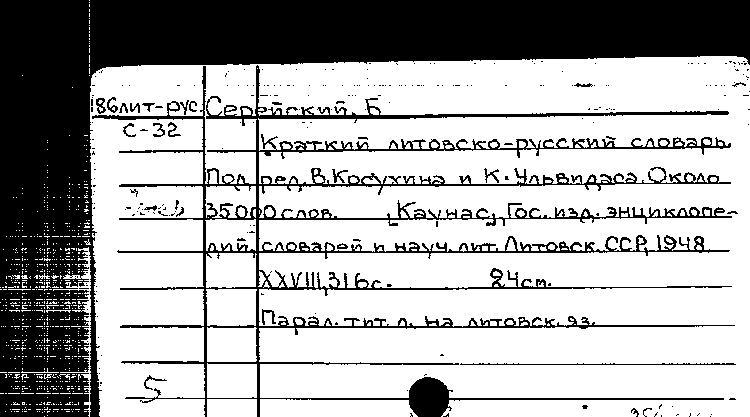 86лит-рус. Серейский, Б
С-32
Краткий литовско-русский словарь.
Под ред. В.Косухина и К. Ульвидаса. Около
35000 слов. [Каунас], Гос. изд. энциклопе-
дий, словарей и науч. лит. Литовск. ССР, 1948
XXVIII, 316с. 24см.
Парал. тит. л. на литовск. яз.
5